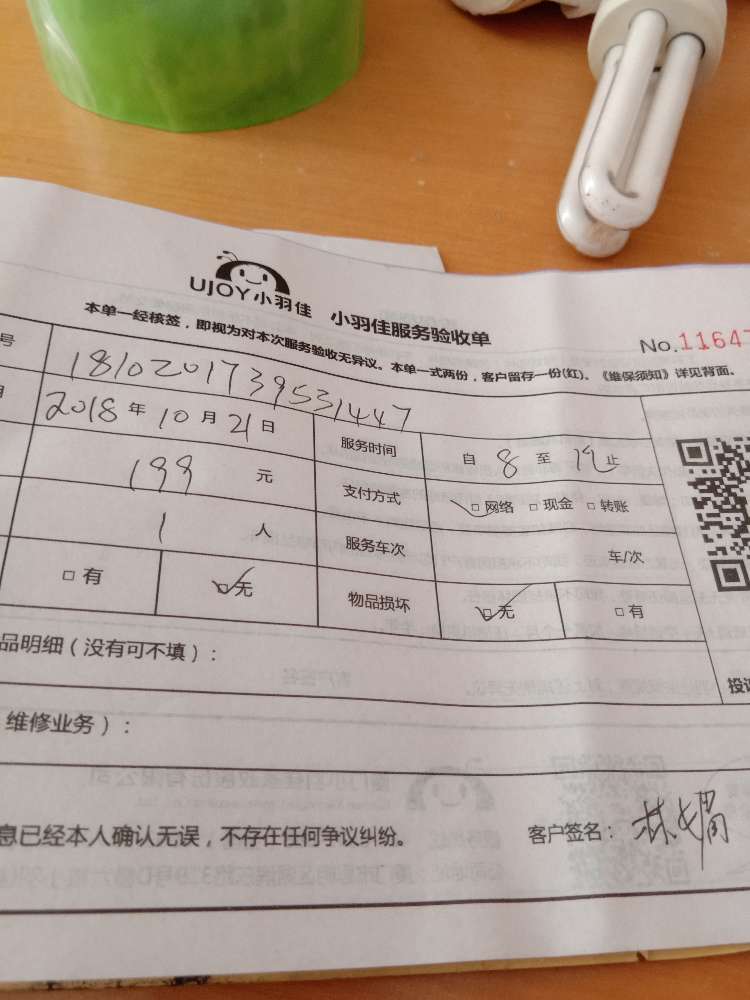 UJOY小羽佳 小羽佳服务验收单
No.11647
本单一经核签，即视为对本次服务验收无异议。本单一式两份，客户留存一份(红)。《维保须知》详见背面。
号 181020173953​1447
2018 年 10 月 21 日 服务时间 自 8 至 12 止
199 元 支付方式 网络 现金 转账
1 人 服务车次 车/次
有 无 物品损坏 无 有
品明细（没有可不填）：
投诉
维修业务）：
息已经本人确认无误，不存在任何争议纠纷。 客户签名：林媚